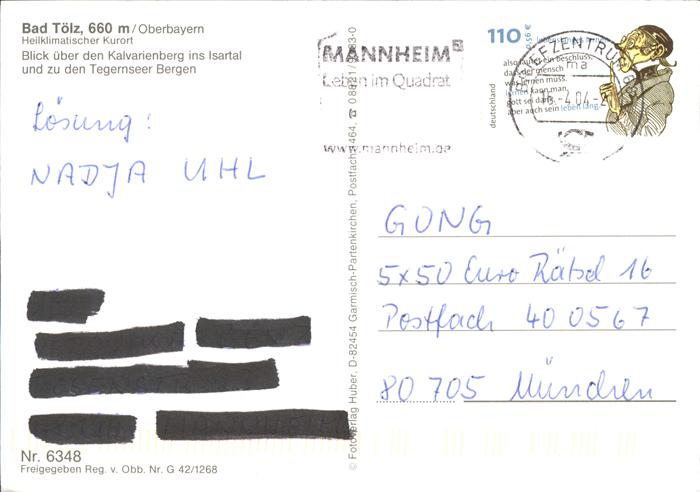 Bad Tölz, 660 m/Oberbayern
Heilklimatischer Kurort
Blick über den Kalvarienberg ins Isartal
und zu den Tegernseer Bergen
Lösung:
NADJA UHL
Nr. 6348
Freigegeben Reg. v. Obb. Nr. G 42/1268
© Fotoverlag Huber, D-82454 Garmisch-Partenkirchen, Postfach 1464, ☎ 08821/
MANNHEIM²
Leben im Quadrat
www.mannheim.de
110
0,56 €
lebenslanges lernen
also lautet ein beschluss:
dass der mensch
was lernen muss.
lernen kann man,
gott sei dank,
aber auch sein leben lang.
deutschland
BRIEFZENTRUM
ma
.4.04-
GONG
5x50 Euro Rätsel 16
Postfach 400567
80705 München